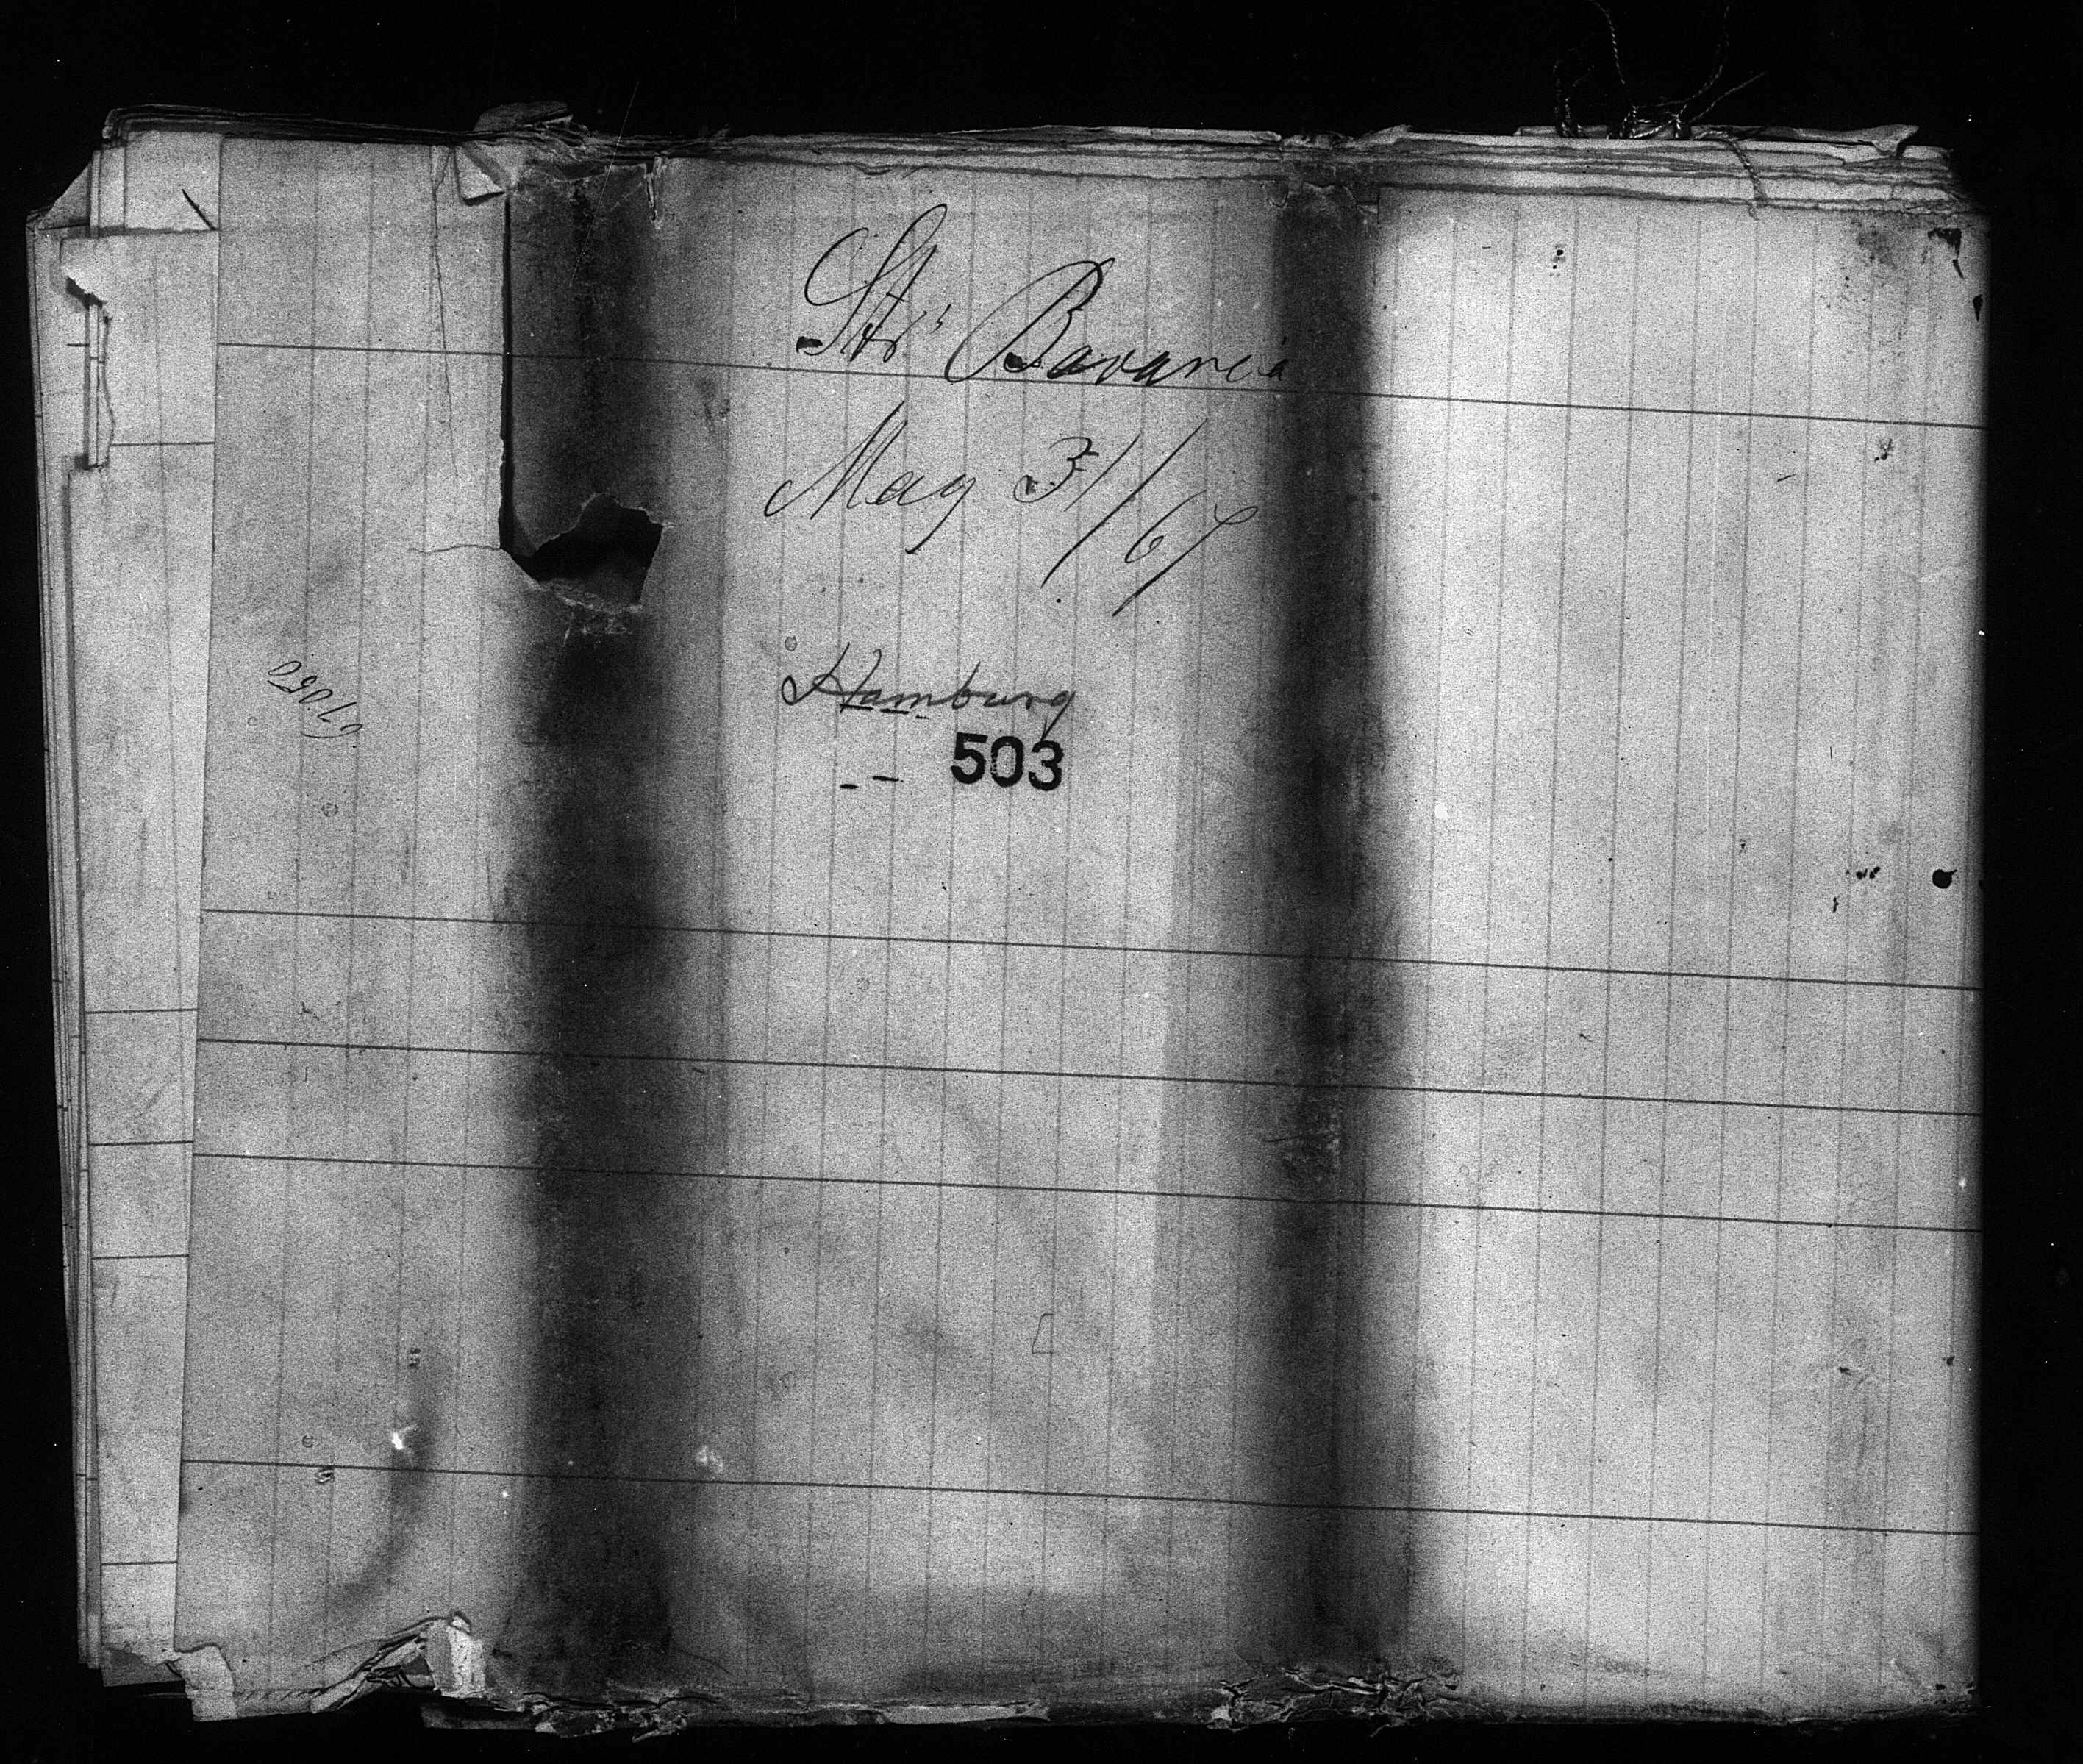 Str. Bavaria
May 31/67
Hamburg
503
67050